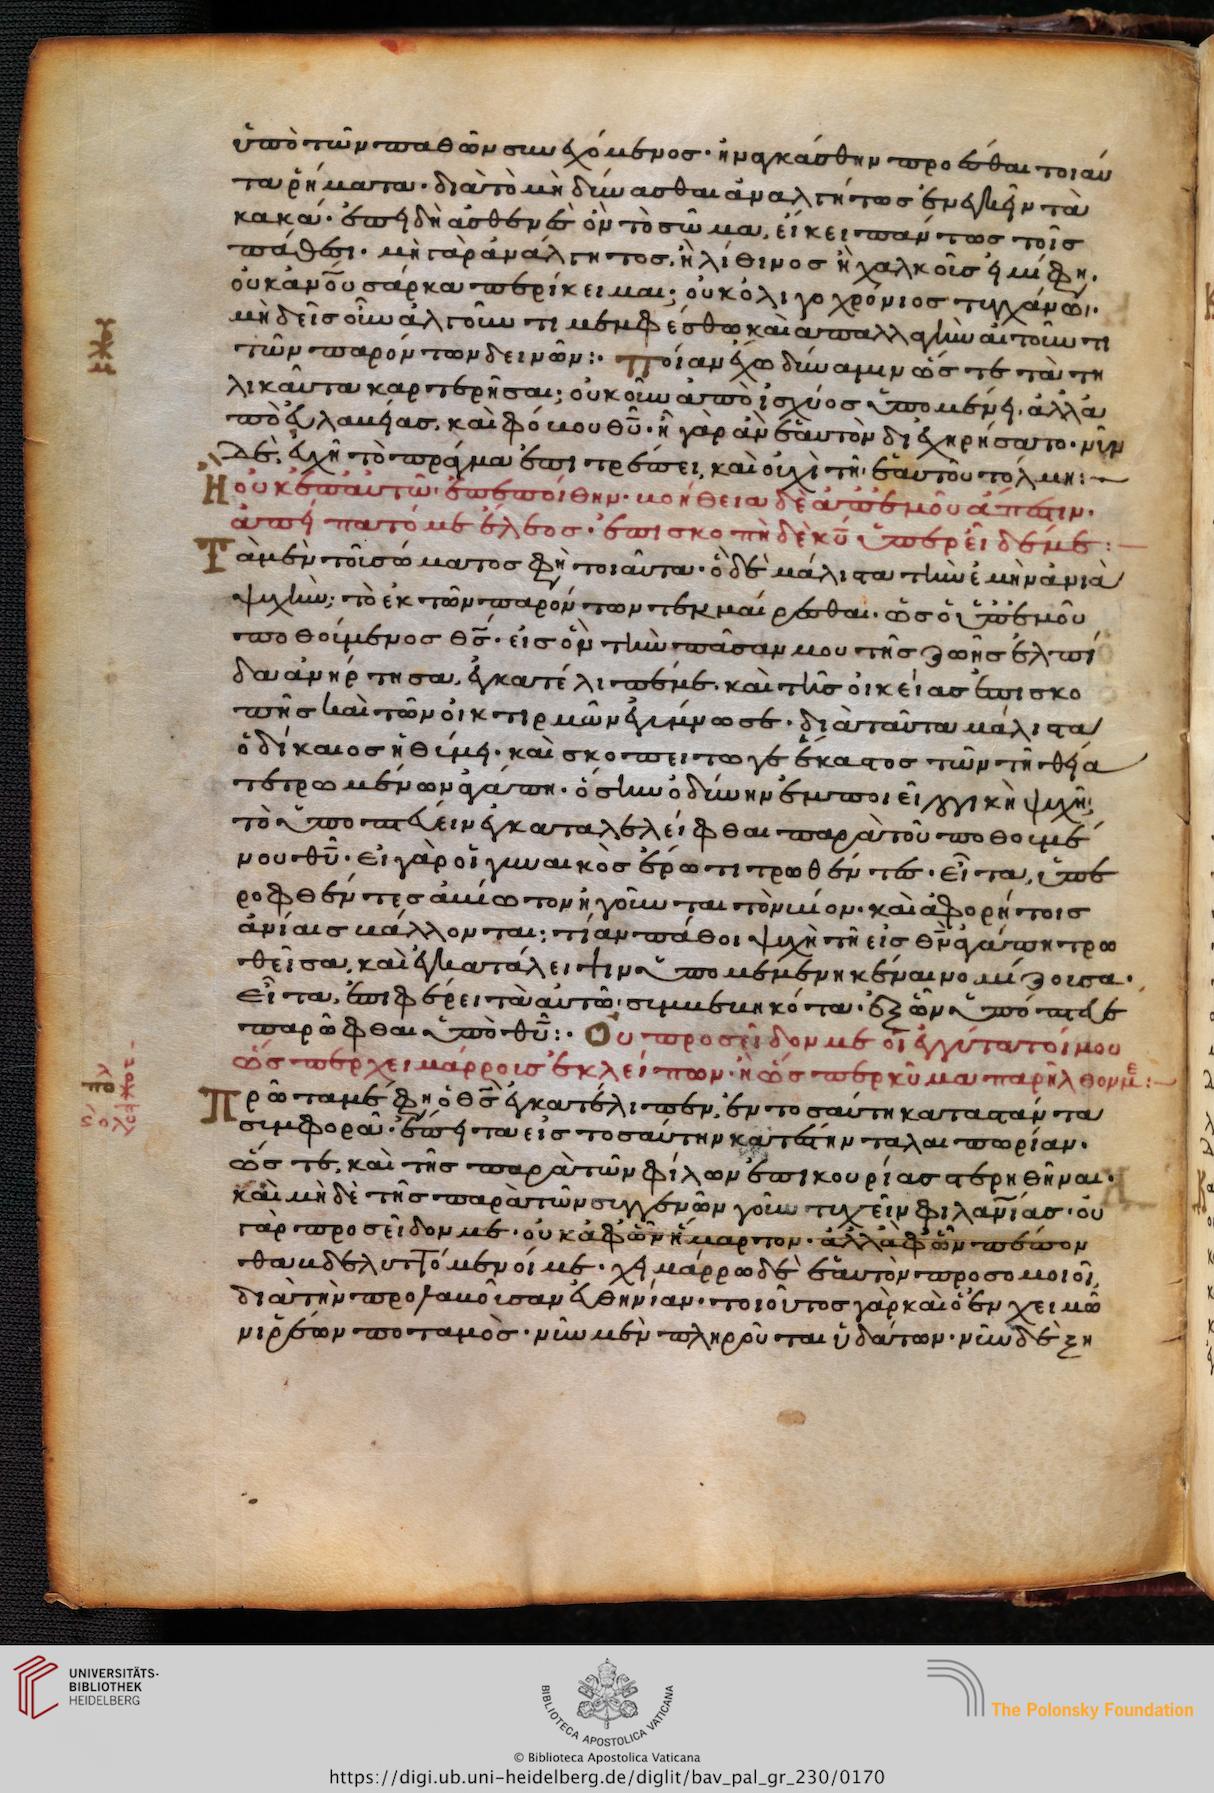 ὑπὸ τῶν παθῶν συνεχόμενος· ἠναγκάσθην προέσθαι τοιαῦ
τα ῥήματα· διὰ τὸ μὴ δύνασθαι ἀναλγήτως ἐνεγκεῖν τὰ
κακά· ἐπειδὴ ἀσθενὲς ὂν τὸ σῶμα, εἴκει πάντως τοῖς
πάθεσι· μὴ γὰρ ἀνάλγητος, ἢ λίθινος ἢ χαλκοῦς εἰμί φη.
οὐκ ἄνου σάρκα περίκειμαι; οὐκ ὀλιγοχρόνιος τυγχάνω;
μηδεὶς οὖν ἀλγοῦντι μεμφέσθω καὶ ἀπαλλαγὴν αἰτοῦντι
τῶν παρόντων δεινῶν:· Ποίαν ἔχω δύναμιν ὥστε τὰ τη
λικαῦτα καρτερῆσαι; οὐκοῦν ἀπὸ ἰσχύος ὑπομένει, ἀλλ' ἀ
πὸ εὐλαβείας, καὶ φόβου θυ· ἢ γὰρ ἂν ἑαυτὸν διεχειρήσατο· νῦν
δὲ, ἐκείνῃ τὸ πρᾶγμα ἐπιτρέπει, καὶ οὐχὶ τῇ ἑαυτοῦ τόλμῃ:
Ἢ οὐκ ἐπ' αὐτῷ ἐπεποίθειν· βοήθεια δὲ ἀπ' ἐμοῦ ἄπεστιν.
ἀπείπατό με ἔλεος· ἐπισκοπὴ δὲ κυ ὑπερεῖδέ με:
Τὰ μὲν τοῦ σώματος φη τοιαῦτα· ὃ δὲ μάλιστα τὴν ἐμὴν ἀνιᾷ
ψυχήν; τὸ ἐκ τῶν παρόντων τεκμαίρεσθαι· ὡς ὁ ὑπ' ἐμοῦ
ποθούμενος θς· εἰς ὃν τὴν πᾶσαν μου τῆς ζωῆς ἐλπί
δα ἀνήρτησα, ἐγκατέλιπέ με. καὶ τῆς οἰκείας ἐπισκο
πῆς καὶ τῶν οἰκτιρμῶν ἐγύμνωσε· διὰ ταῦτα μάλιστα
ὁ δίκαιος ἠθύμει· καὶ σκοπείτω γε ἕκαστος τῶν τῇ θείᾳ
τετρωμένων ἀγάπῃ· ὅσην ὀδύνην ἐμποιεῖ ψυχῇ;
τὸ ὑποπτεύειν ἐγκαταλελεῖφθαι παρὰ τοῦ ποθουμέ
νου θυ· εἰ γὰρ οἱ γυναικὸς ἔρωτι τρωθέντες· εἶτα, ὑπε
ροφθέντες ἀβίωτον ἡγοῦνται τὸν βίον· καὶ ἀφορήτοις
ἀνίαις βάλλονται; τί ἂν πάθοι ψυχὴ τῇ εἰς θν ἀγάπῃ τρω
θεῖσα, καὶ ἐγκατάλειψιν ὑπομεμενηκέναι νομίζουσα.
Εἶτα, ἐπιφέρει τὰ αὐτῷ συμβεβηκότα· ἐξ ὧν ὑπόπτευε
παρῶφθαι ὑπὸ θυ:· Οὐ προσεῖδόν με οἱ ἐγγύτατοί μου
ὥσπερ χειμάρρους ἐκλείπων· ἢ ὥσπερ κῦμα παρῆλθόν με:
Πρῶτα μέ φη ὁ θς ἐγκατέλιπεν, ἐν τοσαύτῃ καταστάντα
συμφορᾷ· ἔπειτα εἰς τοσαύτην κατέστην ταλαιπωρίαν.
ὥστε, καὶ τῆς παρὰ τῶν φίλων ἐπικουρίας στερηθῆναι.
καὶ μηδὲ τῆς παρὰ τῶν συγγενῶν γοῦν τυχεῖν φιλανίας· οὐ
γὰρ προσεῖδόν με· οὐκ ἀφ' ὧν ἥμαρτον· ἀλλ' ἀφ' ὧν πέπον
θα βδελυττόμενοί με· χειμάρρῳ δὲ ἑαυτὸν προσομοιοῖ,
διὰ τὴν προλαβοῦσαν εὐθηνίαν· τοιοῦτος γὰρ καὶ ὁ ἐν χειμῶ
νι ῥέων ποταμός· νῦν μὲν πληροῦται ὑδάτων· νῦν δὲ ξη
UNIVERSITÄTS-
BIBLIOTHEK
HEIDELBERG
BIBLIOTECA APOSTOLICA VATICANA
The Polonsky Foundation
© Biblioteca Apostolica Vaticana
https://digi.ub.uni-heidelberg.de/diglit/bav_pal_gr_230/0170